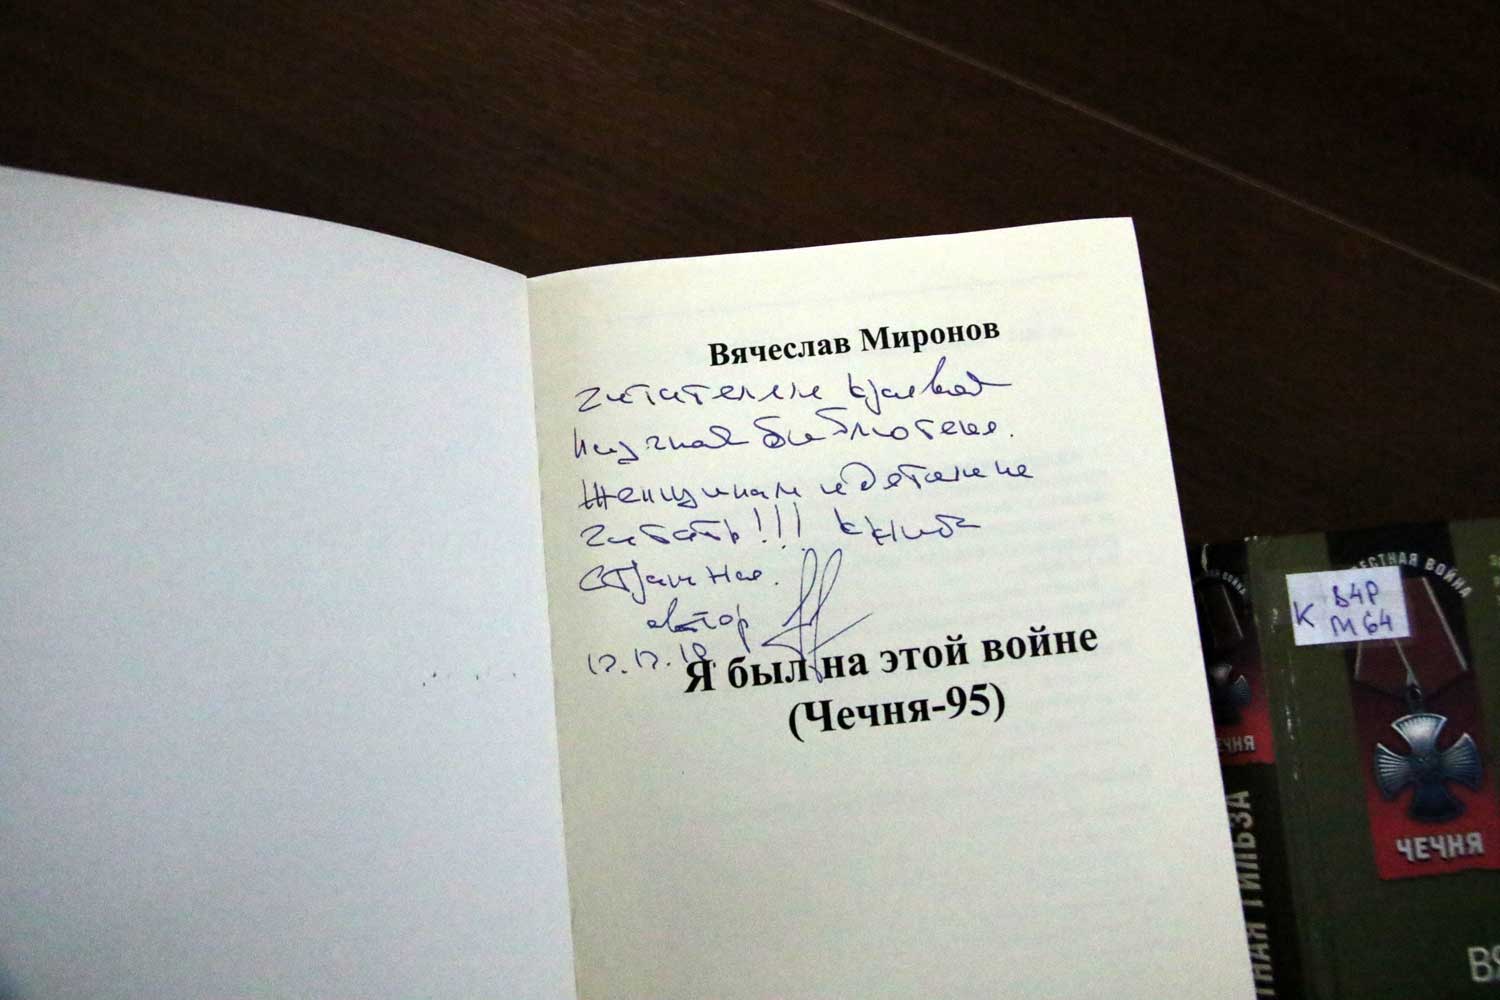 Вячеслав Миронов
Читателям краевой
научной библиотеки.
Женщинам и детям не
читать!!! Книга
страшная.
автор
Я был на этой войне
(Чечня-95)
ЕСТНАЯ ВОЙНА
К 84Р
М 64
ЧЕЧНЯ
ВЯ
ЕЧНЯ
НАЯ ГИЛЬЗА